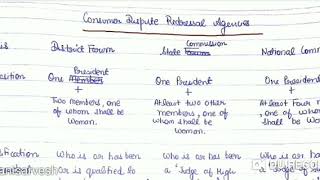 Consumer Dispute Redressal Agencies
District Forum
Commission
State Forum
National Comm
President
One Member
+
Two members, one
of whom shall be
Woman.
One President
+
Atleast two other
members, one of
whom shall be
Woman.
One President
+
Atleast Four m
one of whom
shall be Wo
Who is or has been
or is qualified to
Who is or has been
a "Judge of High
Who is or has